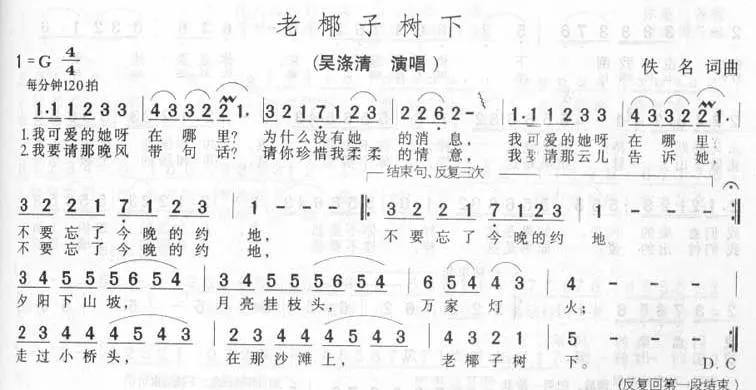 老椰子树下
(吴涤清 演唱)
1=G 4/4
每分钟120拍
佚名 词曲
1·1 1 2 3 3 | 4 3 3 2 2 1· | 3 2 1 7 1 2 3 | 2 2 6 2 - | 1·1 1 2 3 3 | 4 3 3 2 2 1·
1.我可爱的她呀 在 哪 里? 为什么没有她 的消 息, 我可爱的她呀 在 哪 里?
2.我要请那晚风 带 句 话? 请你珍惜我柔柔 的情 意, 我要请那云儿 告 诉 她,
结束句、反复三次
3 2 2 1 7 1 2 3 | 1 - - - :‖ 3 2 2 1 7 1 2 3 | 1 - - - | - - - - ‖
不要忘了今晚的约 地, 不要忘了今晚的约 地
不要忘了今晚的约 地,
3 4 5 5 5 5 6 5 4 | 3 4 5 5 5 5 6 5 4 | 6 5 4 4 3 | 4 - - - |
夕阳下山坡, 月亮挂枝头, 万家 灯 火;
2 3 4 4 4 4 5 4 3 | 2 3 4 4 4 4 5 4 3 | 4 3 2 1 | 5 - - - ‖
走过小桥头, 在那沙滩上, 老椰子树 下。 D. C
(反复回第一段结束